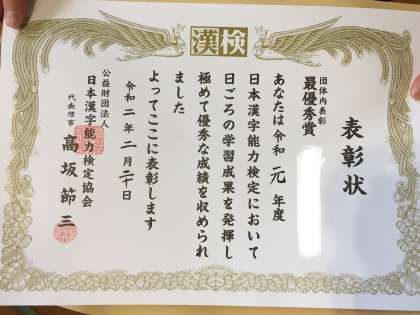 漢検
表彰状
団体内表彰
最優秀賞
あなたは令和元年度
日本漢字能力検定において
日ごろの学習成果を発揮し
極めて優秀な成績を収められ
ました
よってここに表彰します
令和二年二月二十日
公益財団法人
日本漢字能力検定協会
代表理事
髙坂節三